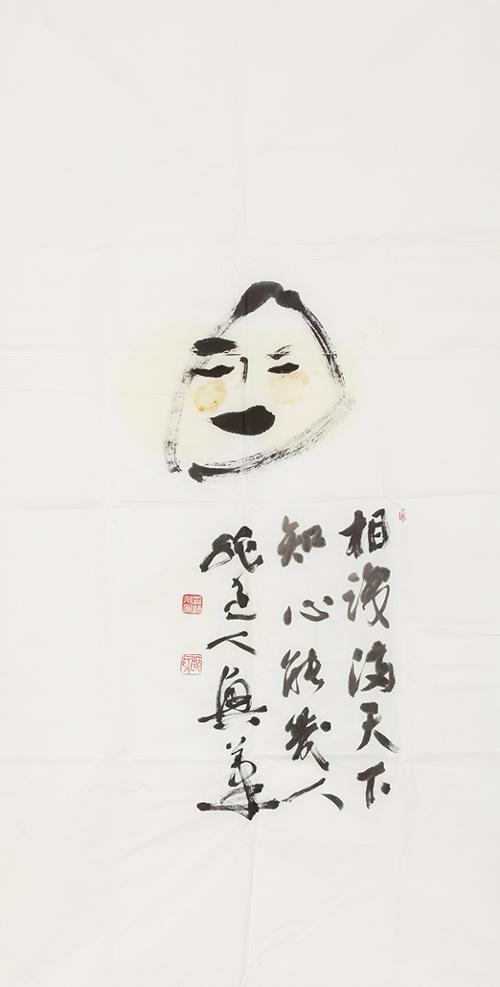 相識滿天下
知心能幾人
道人